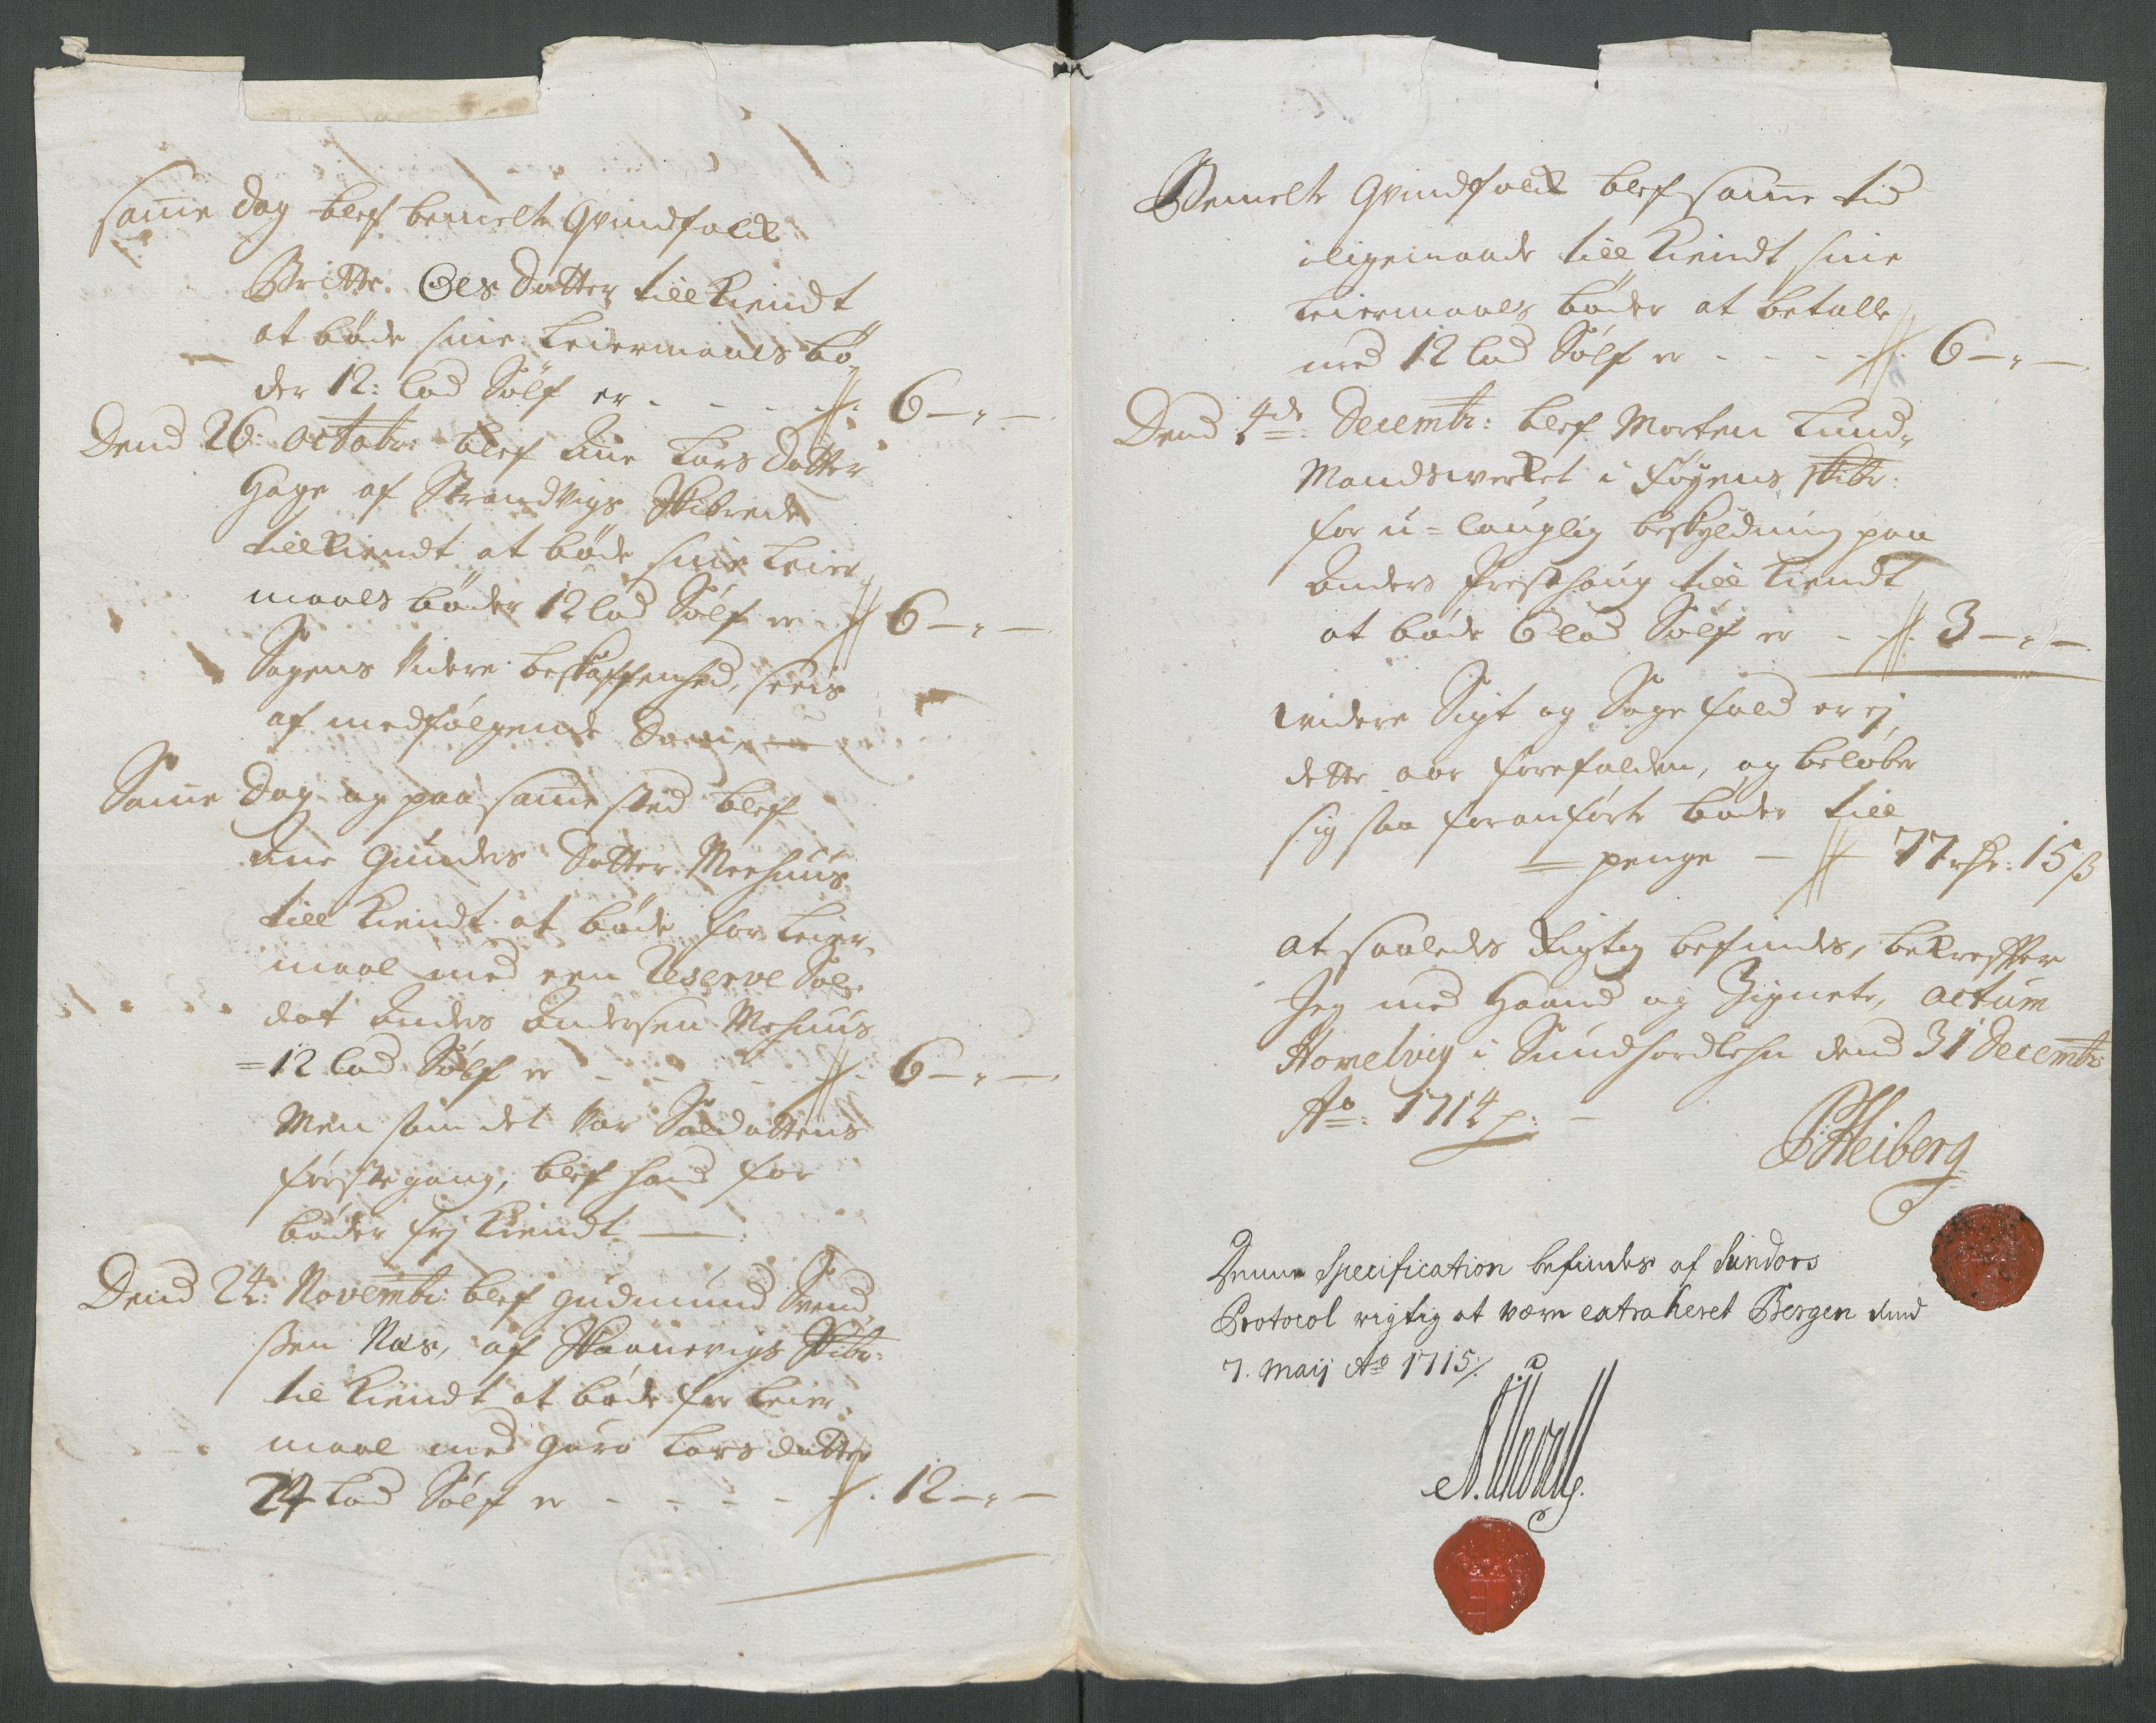 Samme dag blef bemelte Qvindfolck
Britte Ols datter till kiendt
at bøde sine Leiermaals bø,,
der 12: lod Sølf er - - - - 6 - " -
Dend 26: octobr: blef Ane Lars datter
Hage af Strandvigs Skibrede
till kiendt at bøde sine Leier,,
maals bøder 12 lod Sølf er - 6 - " -
Sagens videre beskaffenhed, sees
af medfølgende Dom,
Samme dag og paa samme sted blef
Ane Gunders datter Meehuus
till kiendt at bøde for Leier,,
maal med een Reserve Sol,,
dat Anders Andersen Mehuus
= 12 lod Sølf er - - - - 6 - " -
Men som det var Soldattens
første gang, blef hand for
bøder frj kiendt —
Dend 24: Novembr: blef gudmund Svend,,
ßen Næs, af Skaanevigs Skibr:
til kiendt at bøde for Leier,,
maal med guro Lars datter
24 lod Sølf er - - - - - 12 - " -
Bemelte Qvindfolck blef samme tid
iligemaade till kiendt sine
Leiermaals bøder at betalle
med 12 lod Sølf er - - - - 6 - " -
Dend 4de: Decembr: blef Morten Lund,,
Mandsverket i Føyens skibr:
for u-lauglig beskyldning paa
Anders Presthaug till kiendt
at bøde 6 lod Sølf er - - 3 - " -
widere Sigt og Sagefald er ej
dette aar forefalden, og beløber
sig saa foranførte bøder till
= penge - 77 rdr: 15 ß
at saaledes Rigtig befindes, bekrefter
Jeg med Haand og Zignete, actum
Hovelvig i Sundhordlehn dend 31 Decembr:
Ao: 1714 p: -
PHeiberg
Denne Specification befindes af Sundors
Protocol rigtig at være extraheret Bergen dend
7. Maij Ao 1715/.